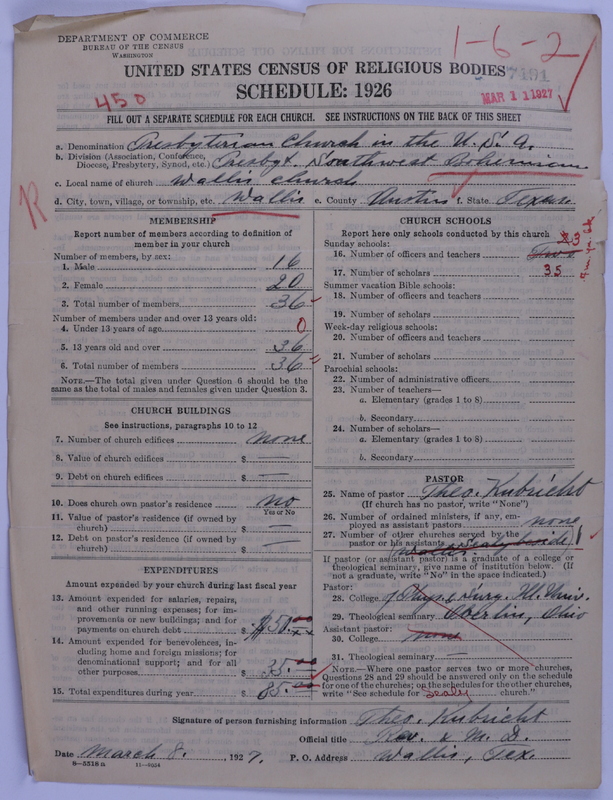 DEPARTMENT OF COMMERCE
BUREAU OF THE CENSUS
WASHINGTON
1-6-2
7491
MAR 11 1927
UNITED STATES CENSUS OF RELIGIOUS BODIES
SCHEDULE: 1926
450
FILL OUT A SEPARATE SCHEDULE FOR EACH CHURCH. SEE INSTRUCTIONS ON THE BACK OF THIS SHEET
a. Denomination Presbyterian Church in the U. S. A.
b. Division (Association, Conference, Diocese, Presbytery, Synod, etc.) Presbyt. Southwest Bohemian
c. Local name of church Wallis church
d. City, town, village, or township, etc. Wallis e. County Austin f. State Texas
R
MEMBERSHIP
Report number of members according to definition of member in your church
Number of members, by sex:
1. Male 16
2. Female 20
3. Total number of members 36
Number of members under and over 13 years old:
4. Under 13 years of age 0
5. 13 years old and over 36
6. Total number of members 36
NOTE.—The total given under Question 6 should be the same as the total of males and females given under Question 3.
CHURCH BUILDINGS
See instructions, paragraphs 10 to 12
7. Number of church edifices none
8. Value of church edifices $ —
9. Debt on church edifices $ —
10. Does church own pastor's residence no
Yes or No
11. Value of pastor's residence (if owned by church) $ —
12. Debt on pastor's residence (if owned by church) $ —
EXPENDITURES
Amount expended by your church during last fiscal year
13. Amount expended for salaries, repairs, and other running expenses; for improvements or new buildings; and for payments on church debt $ 50.00
14. Amount expended for benevolences, including home and foreign missions; for denominational support; and for all other purposes $ 35.00
15. Total expenditures during year $ 85.00
CHURCH SCHOOLS
Report here only schools conducted by this church
Sunday schools:
16. Number of officers and teachers 3
17. Number of scholars 35
Summer vacation Bible schools:
18. Number of officers and teachers
19. Number of scholars
Week-day religious schools:
20. Number of officers and teachers
21. Number of scholars
Parochial schools:
22. Number of administrative officers
23. Number of teachers—
a. Elementary (grades 1 to 8)
b. Secondary
24. Number of scholars—
a. Elementary (grades 1 to 8)
b. Secondary
PASTOR
25. Name of pastor Theo. Kubricht
(If church has no pastor, write "None")
26. Number of ordained ministers, if any, employed as assistant pastors none
27. Number of other churches served by the pastor or his assistants Sealy 1
If pastor (or assistant pastor) is a graduate of a college or theological seminary, give name of institution below. (If not a graduate, write "No" in the space indicated.)
Pastor:
28. College of Phys. & Surg. Ill. Univ.
29. Theological seminary Oberlin, Ohio
Assistant pastor:
30. College none
31. Theological seminary —
NOTE.—Where one pastor serves two or more churches, Questions 28 and 29 should be answered only on the schedule for one of the churches; on the schedules for the other churches, write "See schedule for Sealy church."
Signature of person furnishing information Theo. Kubricht
Official title Rev. & M. D.
Date March 8, 1927. P. O. Address Wallis, Tex.
8—5518 a 11—9024